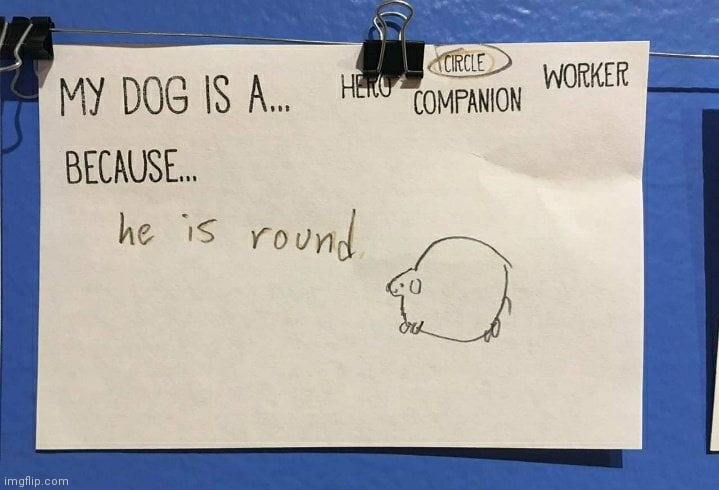 MY DOG IS A... HERO CIRCLE COMPANION WORKER
BECAUSE...
he is round.
imgflip.com